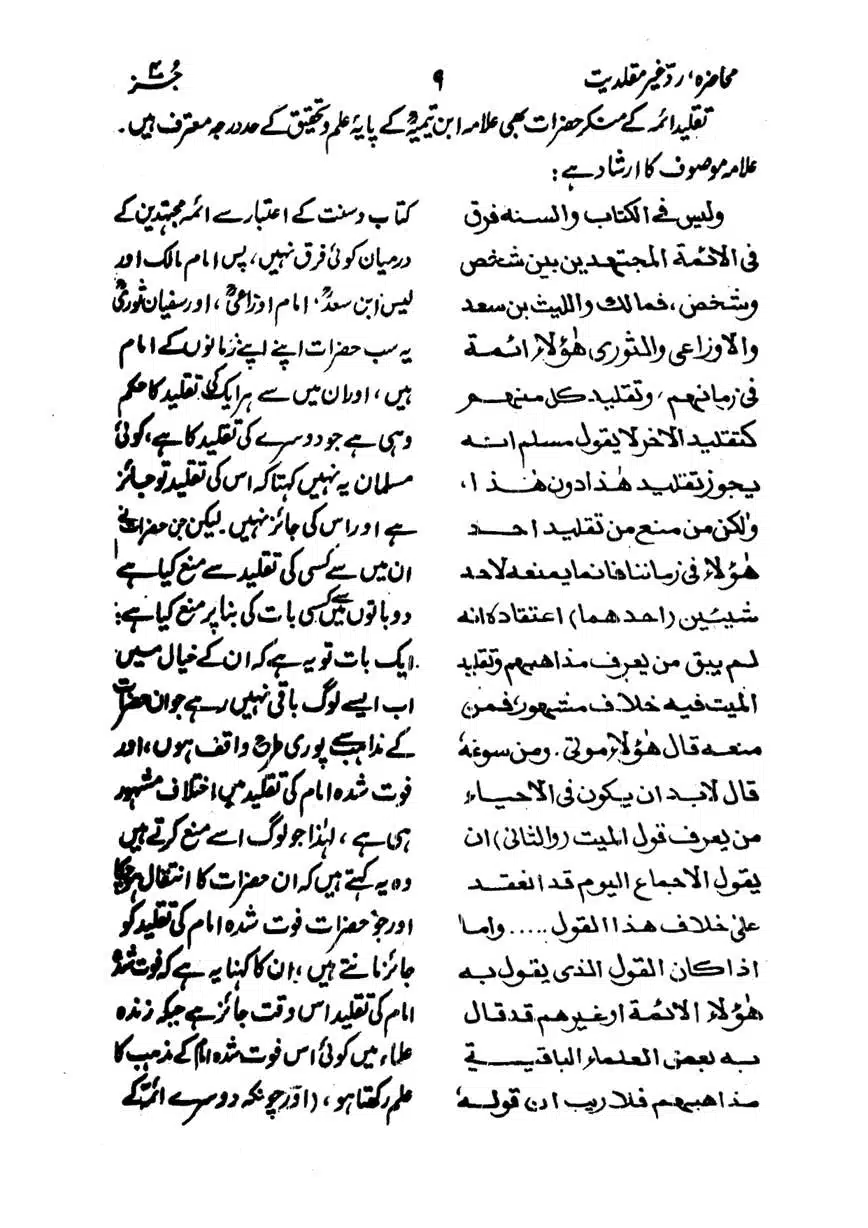 محاضرہ، ردّ غیر مقلدیت
۹
جُز ۴
تقلید ائمہ کے منکر حضرات بھی علامہ ابن تیمیہؒ کے پایۂ علم و تحقیق کے حد درجہ معترف ہیں۔
علامہ موصوف کا ارشاد ہے:
وليس فى الكتاب والسنه فرق
فى الائمة المجتهدين بين شخص
وشخص، فمالك والليث بن سعد
والاوزاعى والثورى هٰؤلاء ائمة
فى زمانهم، وتقليد كل منهم
كتقليد الاخر لا يقول مسلم انه
يجوز تقليد هٰذا دون هٰذا،
ولكن من منع من تقليد احد
هٰؤلاء فى زماننا فانما يمنعه لاحد
شيئين (احدهما) اعتقاده انه
لم يبق من يعرف مذاهبهم وتقليد
الميت فيه خلاف مشهور، فمن
منعه قال هٰؤلاء موتى. ومن سوغه
قال لابد ان يكون فى الاحياء
من يعرف قول الميت (والثانى) ان
يقول الاجماع اليوم قد انعقد
على خلاف هذا القول ..... واما
اذا كان القول الذى يقول به
هٰؤلاء الائمة او غيرهم قد قال
به بعض العلماء الباقية
مذاهبهم فلا ريب ان قوله
کتاب وسنت کے اعتبار سے ائمہ مجتہدین کے
درمیان کوئی فرق نہیں، پس امام مالک اور
لیس ابن سعدؒ، امام اوزاعیؒ، اور سفیان ثوریؒ
یہ سب حضرات اپنے اپنے زمانوں کے امام
ہیں، اور ان میں سے ہر ایک کی تقلید کا حکم
وہی ہے جو دوسرے کی تقلید کا ہے، کوئی
مسلمان یہ نہیں کہتا کہ اس کی تقلید تو جائز
ہے اور اس کی جائز نہیں۔ لیکن جن حضرات نے
ان میں سے کسی کی تقلید سے منع کیا ہے
دو باتوں میں سے کسی بات کی بنا پر منع کیا ہے:
ایک بات تو یہ ہے کہ ان کے خیال میں
اب ایسے لوگ باقی نہیں رہے جو ان حضرات
کے مذاہب سے پوری طرح واقف ہوں، اور
فوت شدہ امام کی تقلید میں اختلاف مشہور
ہی ہے، لہٰذا جو لوگ اسے منع کرتے ہیں
وہ یہ کہتے ہیں کہ ان حضرات کا انتقال ہوچکا
اور جو حضرات فوت شدہ امام کی تقلید کو
جائز مانتے ہیں، ان کا کہنا یہ ہے کہ فوت شدہ
امام کی تقلید اس وقت جائز ہے جبکہ زندہ
علماء میں کوئی اس فوت شدہ امام کے مذہب کا
علم رکھتا ہو، (اور چونکہ دوسرے ائمہ کے